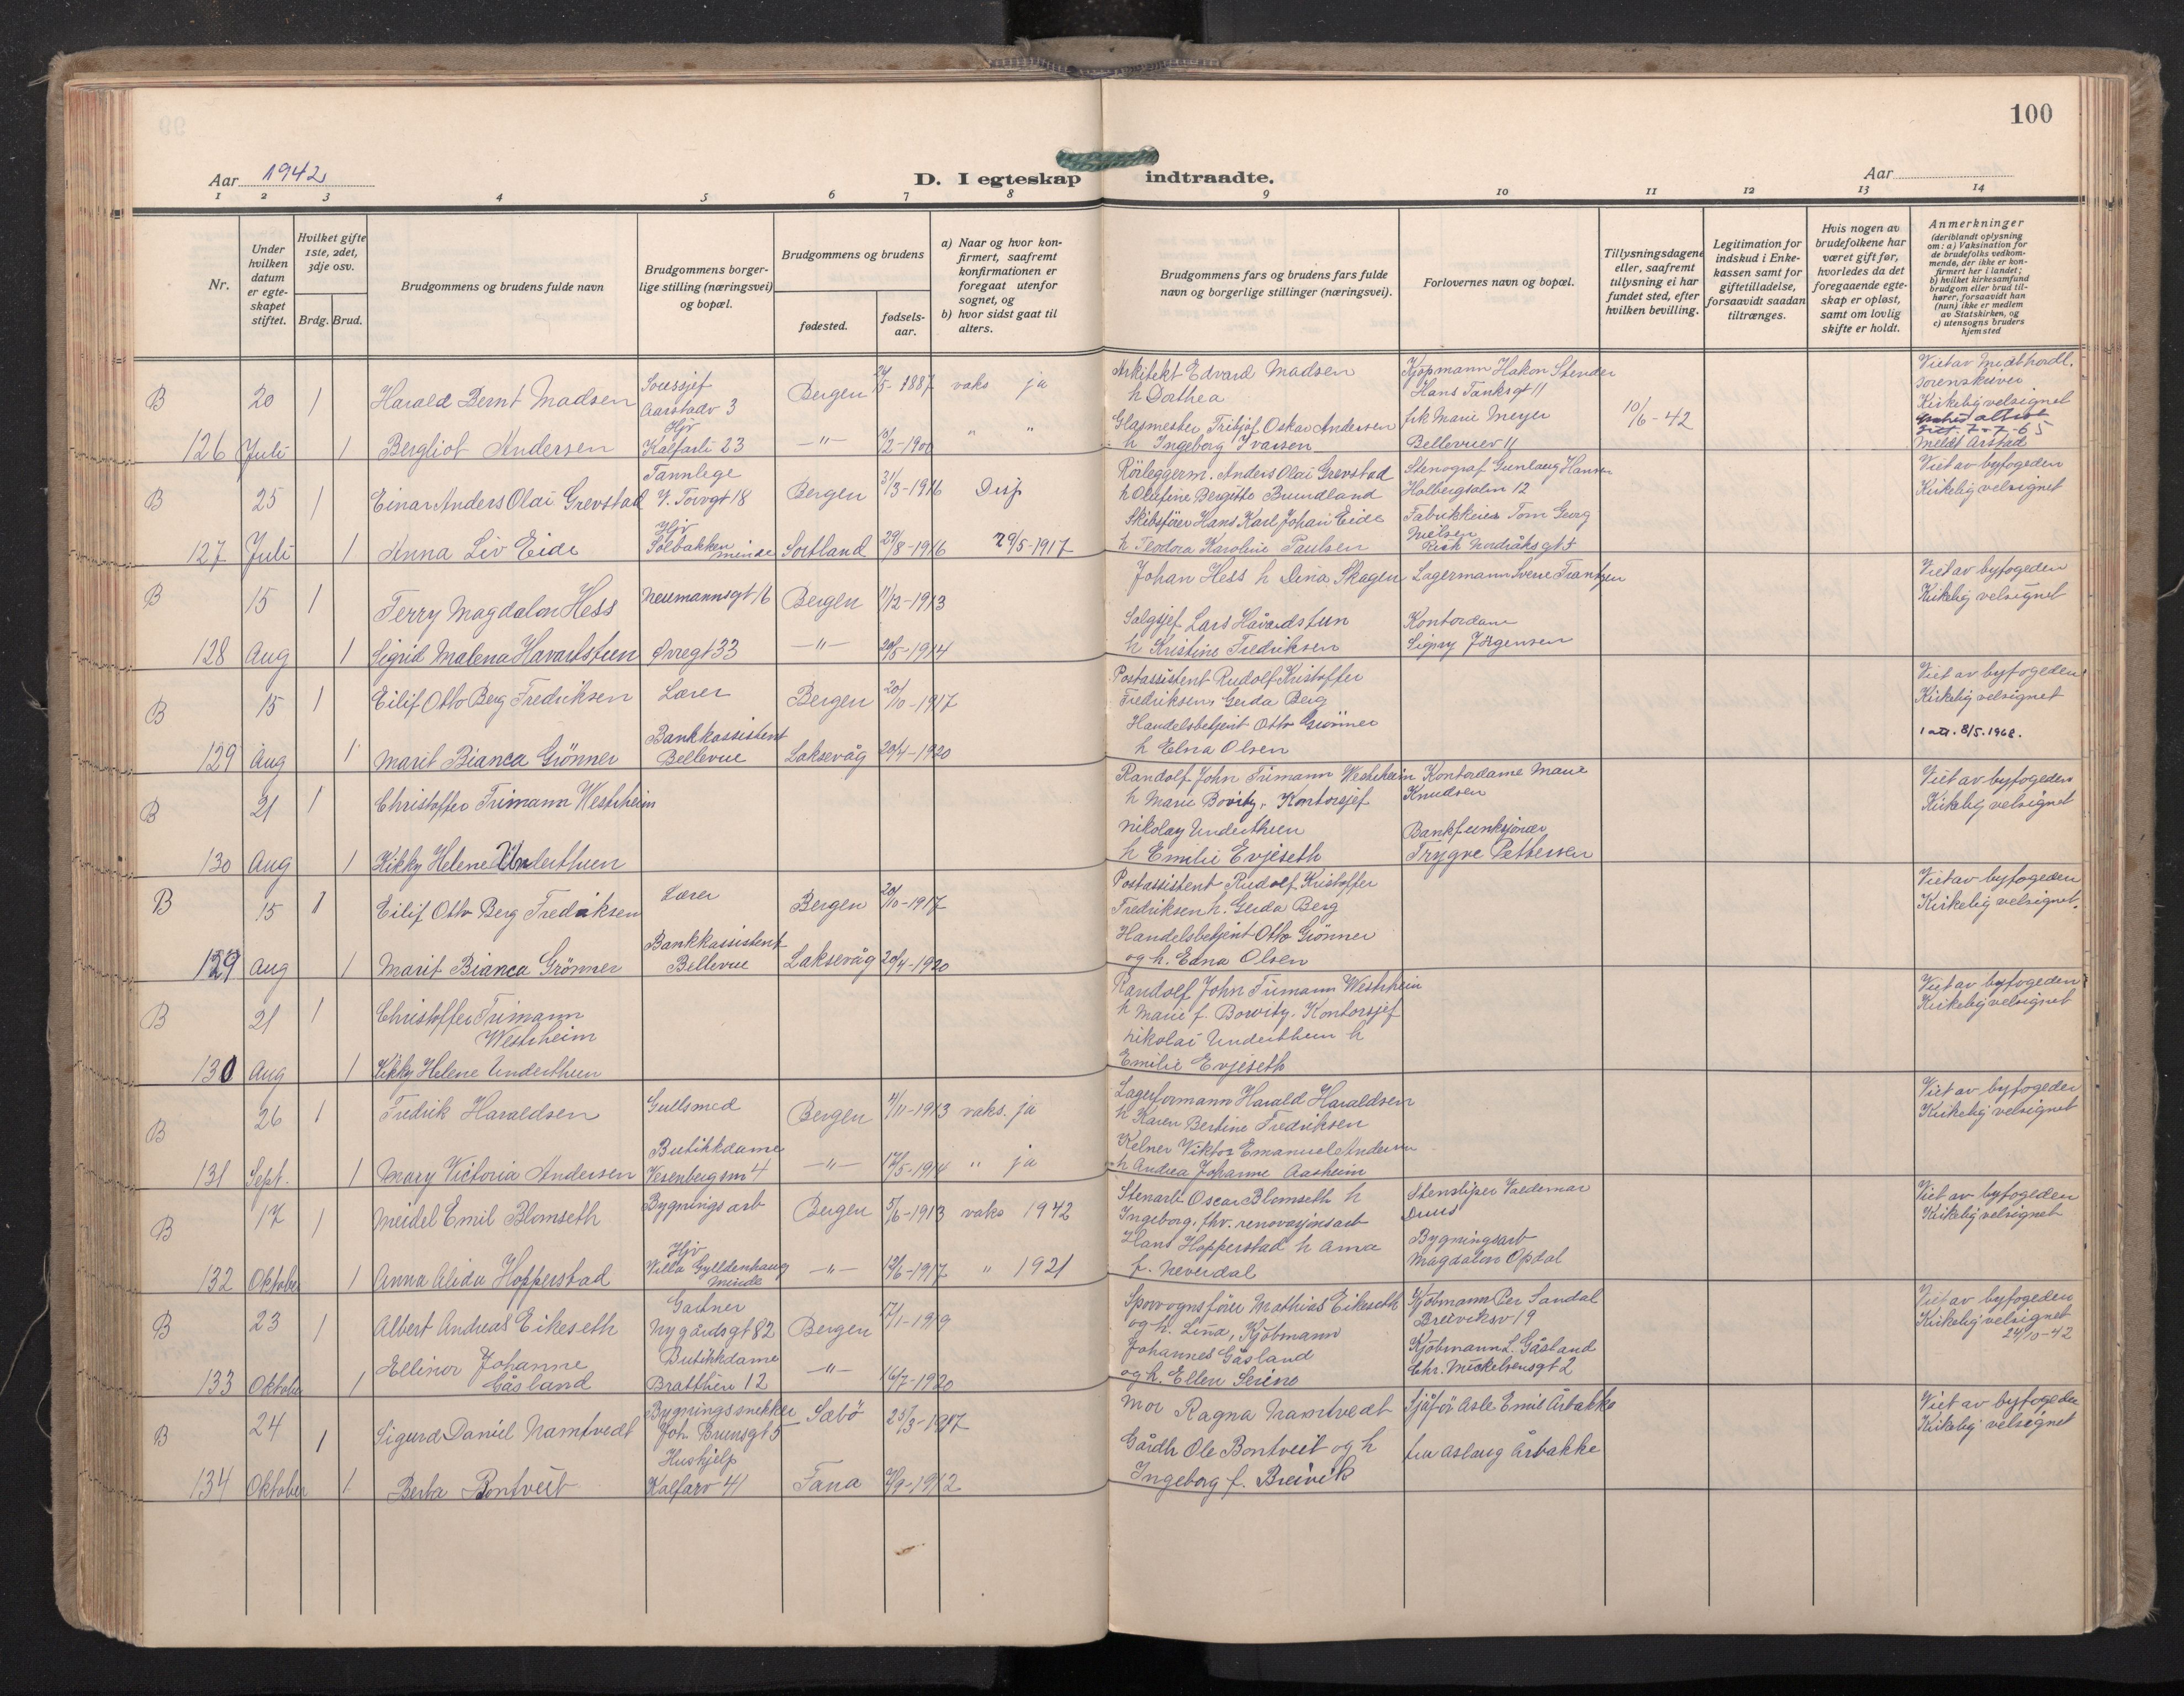 100
Aar 1942
D. I egteskap indtraadte.
Aar
1 2 3 4 5 6 7 8 9 10 11 12 13 14
Nr.
Under hvilken datum er egteskapet stiftet.
Hvilket gifte 1ste, 2det, 3dje osv.
Brdg. Brud.
Brudgommens og brudens fulde navn
Brudgommens borgerlige stilling (næringsvei) og bopæl.
Brudgommens og brudens
fødested.
fødselsaar.
a) Naar og hvor konfirmert, saafremt konfirmationen er foregaat utenfor sognet, og
b) hvor sidst gaat til alters.
Brudgommens fars og brudens fars fulde navn og borgerlige stillinger (næringsvei).
Forlovernes navn og bopæl.
Tillysningsdagene eller, saafremt tillysning ei har fundet sted, efter hvilken bevilling.
Legitimation for indskud i Enkekassen samt for giftetilladelse, forsaavidt saadan tiltrænges.
Hvis nogen av brudefolkene har været gift før, hvorledes da det foregaaende egteskap er opløst, samt om lovlig skifte er holdt.
Anmerkninger (deriblandt oplysning om: a) Vaksination for de brudefolks vedkommende, der ikke er konfirmert her i landet; b) hvilket kirkesamfund brudgom eller brud tilhører, forsaavidt han (hun) ikke er medlem av Statskirken, og c) utensogns bruders hjemsted
B 20 1 Harald Bernt Madsen Aarstadv 3 Bergen 5-1887 vaks ja
Arkitekt Edvard Madsen
h Dorthea
Kjøpmann Hakon Stender
Hans Tanksgt 11
10/6-42
Viet av Midthordl.
sorenskriver
Kirkelig velsignet
7-7-65
meldt Årstad
126 Juli 1 Bergliot Andersen Hjv Kalfarli 23 -"- 2-1900 " "
Glasmester Fritjof Oskar Andersen
h Ingeborg Ivarsen
frk Marie Meyer
Bellevuev 11
B 25 1 Einar Anders Olai Grevstad Tannlege V. Torvgt 18 Bergen 31/3-1916 Disp
Rörleggerm. Anders Olai Grevstad
h Olufine Bergitte Brundland
Stenograf Gunlaug
Holbergsalm 12
Viet av byfogeden
Kirkelig velsignet
127 Juli 1 Anna Liv Eide Hjv Solbakken minde Sortland 29/8-1916 29/5-1917
Skibsförer Hans Karl Johan Eide
h Teodora Karoline Paulsen
Fabrikkeier Tom Georg
Nielsen
Rich Nordråksgt 5
B 15 1 Terry Magdalon Hess Neumannsgt 16 Bergen 11/12-1913
Johan Hess h Dina Skagen
Lagermann Sverre Frantzen
Viet av byfogeden
Kirkelig velsignet
128 Aug 1 Sigrid Malena Havardstun Øvregt 33 -"- 20/5-1914
Salgsjef Lars Håvardstun
h Kristine Fredriksen
Kontordame
Signy Jörgensen
B 15 1 Eilif Otto Berg Fredriksen Lærer Bergen 20/10-1917
Postassistent Rudolf Kristoffer
Fredriksen, Gerda Berg
Viet av byfogeden
Kirkelig velsignet
1 att. 8/5.1968.
129 Aug 1 Marit Bianca Grönner Bankkassistent Bellevue Laksevåg 20/4-1920
Handelsbetjent Otto Grönner
h Elna Olsen
B 21 1 Christoffer Trimann Westrheim
Randolf John Trimann Westrheim
h Marie Bowitz, Kontorsjef
Kontordame Marie
Knudsen
Viet av byfogeden
Kirkelig velsignet
130 Aug 1 Kikky Helene Underthun
Nikolay Underthun
h Emilie Evjeseth
Bankfunksjonær
Trygve Pettersen
B 15 1 Eilif Otto Berg Fredriksen Lærer Bergen 20/10-1917
Postassistent Rudolf Kristoffer
Fredriksen h. Gerda Berg
Viet av byfogeden
Kirkelig velsignet.
129 Aug 1 Marit Bianca Grönner Bankkassistent Bellevue Laksevåg 20/4-1920
Handelsbetjent Otto Grönner
og h. Edna Olsen
B 21 1 Christoffer Trimann Westrheim
Randolf John Trimann Westrheim
h Marie f. Bowitz. Kontorsjef
Viet av byfogeden
Kirkelig velsignet
130 Aug 1 Kikky Helene Underthun
Nikolai Underthun h
Emilie Evjeseth
B 26 1 Fredrik Haraldsen Gullsmed Bergen 4/11-1913 vaks. ja
Lagerformann Harald Haraldsen
h Karen Bertine Fredriksen
Viet av byfogeden
Kirkelig velsignet
131 Sept. 1 Mary Victoria Andersen Butikkdame Vesenbergsm 4 -"- 17/5-1914 " ja
Kelner Viktor Emanuel Andersen
h Andrea Johanne Aasheim
B 17 1 Meidel Emil Blomseth Bygnings arb Bergen 5/6-1913 vaks 1942
Stenarb Oscar Blomseth h
Ingeborg, fhv. renovasjonsarb
Stensliper Valdemar
Duus
Viet av byfogeden
Kirkelig velsignet
132 Oktober 1 Anna Alida Hopperstad Hjv Villa Gylldenhaug Minde -"- 12/6-1917 " 1921
Hans Hopperstad h Anna
f. Neverdal
Bygningsarb
Magdalon Opdal
B 23 1 Albert Andreas Eikeseth Gartner Nygårdsgt 82 Bergen 17/1-1919
Sporvognsfører Mathias Eikeseth
og h. Lina, Kjöbmann
Kjöbmann Per Sandal
Breiviksv 19
Viet av byfogeden
Kirkelig velsignet
24/10-42
133 Oktober 1 Ellinor Johanne Gåsland Butikkdame Bratthien 12 -"- 16/7-1920
Johannes Gåsland
og h. Ellen Serine
Kjöbmann L. Gåsland
Chr. Mickelsensgt 2
B 24 1 Sigurd Daniel Namtvedt Bygningssnekker Joh. Brunsgt 5 Sæbö 25/3-1917
Mor Ragna Namtvedt
Sjåför Asle Emil Årbakke
Viet av byfogeden
Kirkelig velsignet
134 Oktober 1 Berta Bontveit Huskjelp Kalfarv 41 Fana 9-1912
Gårdb Ole Bontveit og h
Ingeborg f. Breivik
fru Aslaug Årbakke